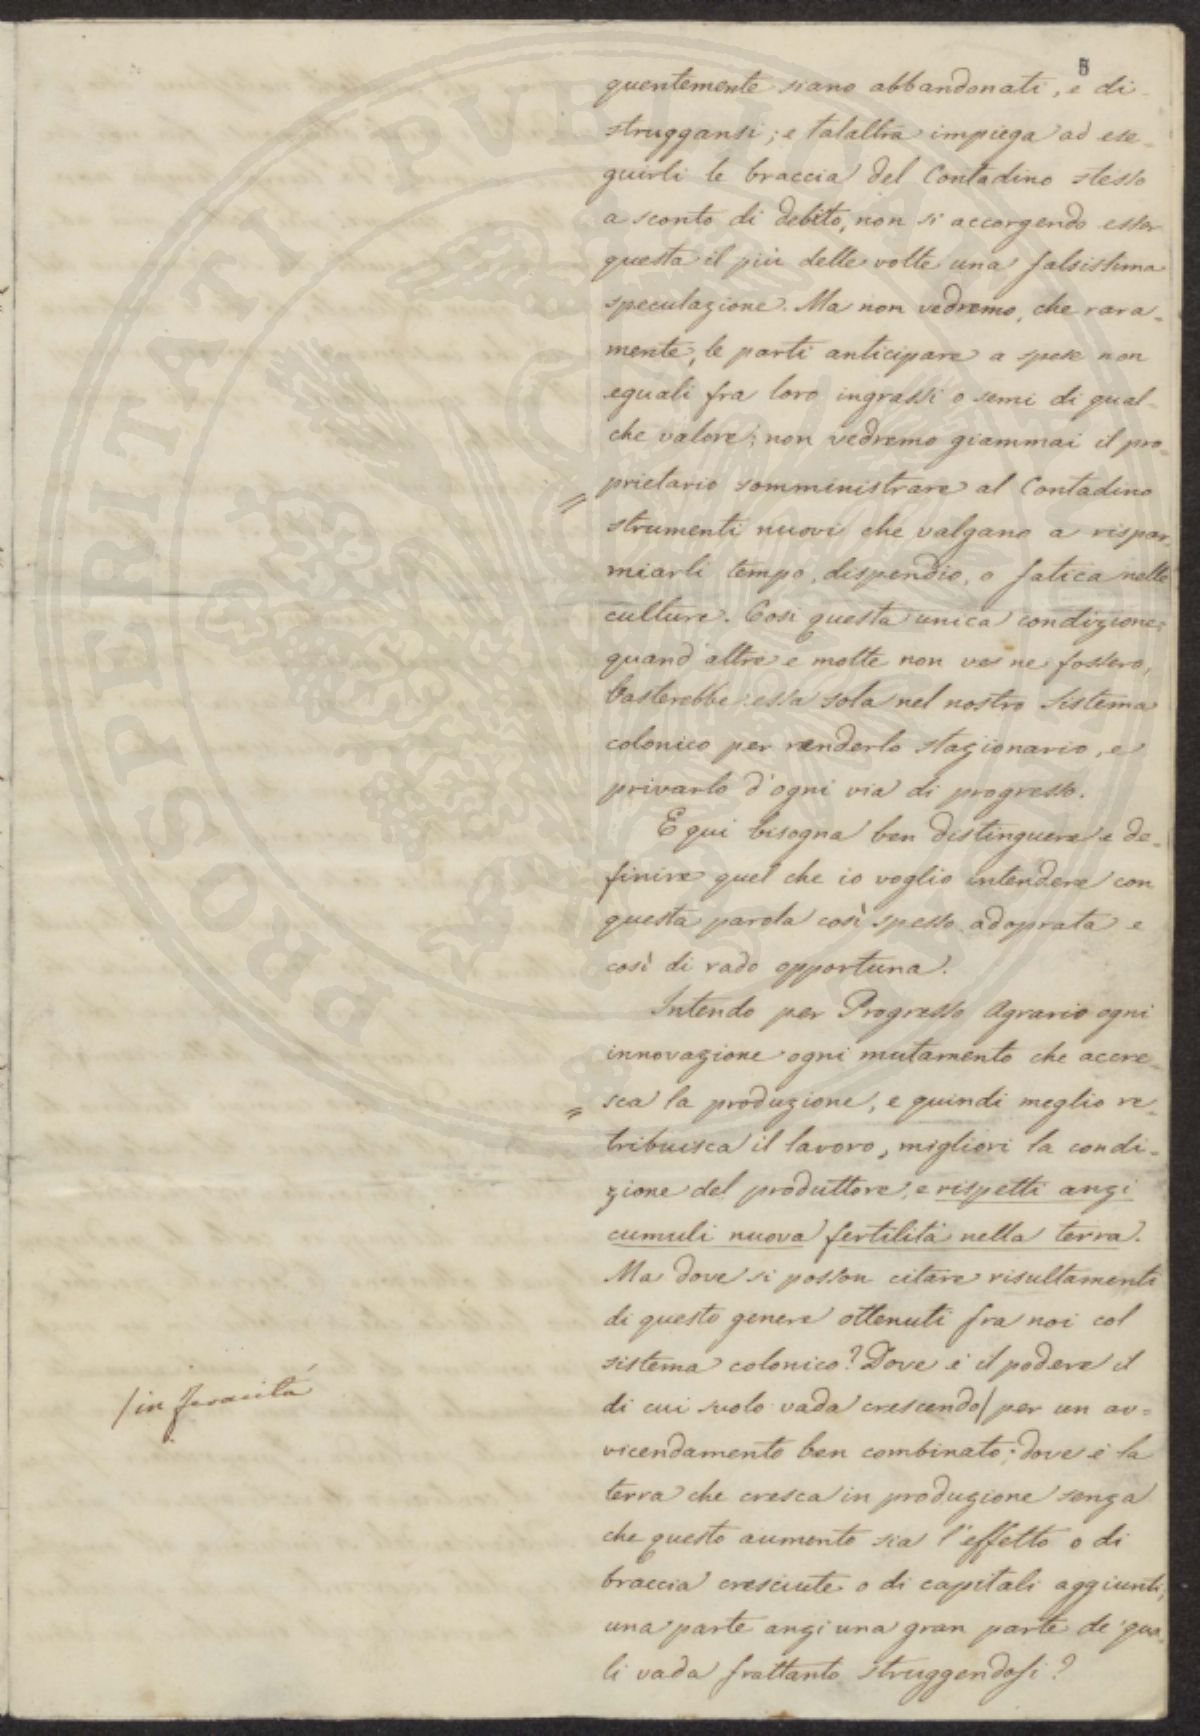 5
quentemente siano abbandonati, e di-
struggansi; e talaltra impiega ad ese-
guirli le braccia del Contadino stesso
a sconto di debito, non si accorgendo esser
questa il più delle volte una falsissima
speculazione. Ma non vedremo, che rara-
mente, le parti anticipare a spese non
eguali fra loro ingrassi o semi di qual-
che valore; non vedremo giammai il pro-
prietario somministrare al Contadino
strumenti nuovi che valgano a rispar-
miarli tempo, dispendio, o fatica nelle
culture. Così questa unica condizione,
quand'altre e molte non ve ne fossero,
basterebbe essa sola nel nostro sistema
colonico per renderlo stazionario, e
privarlo d'ogni via di progresso.
E qui bisogna ben distinguere e de-
finire quel che io voglio intendere con
questa parola così spesso adoprata e
così di rado opportuna.
Intendo per Progresso Agrario ogni
innovazione ogni mutamento che accre-
sca la produzione, e quindi meglio re-
tribuisca il lavoro, migliori la condi-
zione del produttore, e rispetti anzi
cumuli nuova fertilità nella terra.
Ma dove si posson citare risultamenti
di questo genere ottenuti fra noi col
sistema colonico? Dove è il podere il
di cui suolo vada crescendo/ per un av-
/in feracità
vicendamento ben combinato; dove è la
terra che cresca in produzione senza
che questo aumento sia l'effetto o di
braccia cresciute o di capitali aggiunti,
una parte anzi una gran parte de' qua-
li vada frattanto struggendosi?
PROSPERITATI PUBLICAE